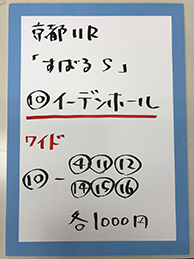 京都11R
「すばるS」
⑩イーデンホール
ワイド
⑩-④⑪⑫
⑭⑮⑯
各1000円